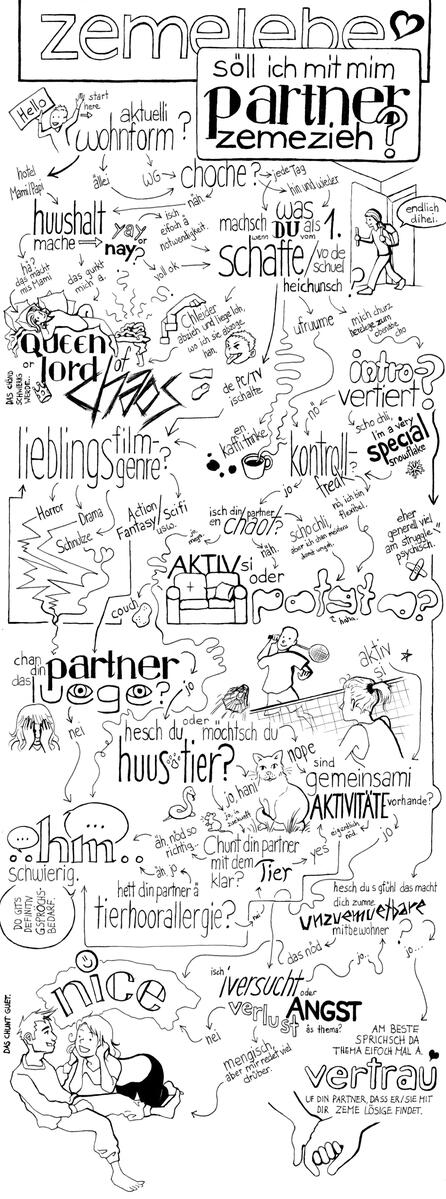 zemelebe
söll ich mit mim
partner
zemezieh?
Hello
start
here
aktuelli
wohnform?
hotel
Mami/Papi
ällei
WG
choche?
jede Tag
hin und wieder
näh
isch
eifoch ä
notwendigkeit.
huushalt
mache
yay
or
nay?
hä?
das macht
mis Mami
das gurkt
mich a.
voll ok
was
machsch DU als 1.
wenn
vom
schaffe/
vo de
schuel
heichunsch?
endlich
dihei.
Queen
or
lord
of
chaos
DAS CHÖND
SCHWIERIG
WERDE...
Chleider
abzieh und liege loh,
wo ich sie abzoge
han.
ufruume
mich churz
herelege zum
obenabe
cho
de PC/TV
ischalte
intro-
vertiert?
nö
scho chli,
I'm a very
special
snowflake
en
Kaffi trinke
lieblings film-
genre?
kontroll-
freak?
jo
nö, ich bin
flexibel.
Horror
Drama
Schnulze
Action/
Fantasy/
Scifi
usw.
isch din partner/
en chaot?
jo,
mega
näh.
scho chli,
aber ich chan meistens
demit umgah.
eher
generell viel
am strugglen
psychisch.
AKTIV si
oder
potato?
haha.
couch
chan
din partner
das
luege?
jo
nei
aktiv
si
hesch du oder möchtsch du
huus-tier?
nope
jo, hani
jo, in
zuekunft
sind
gemeinsami
AKTIVITÄTE vorhande?
eigentlich
nöd
jo
..hm..
schwierig.
DO GITS
DEFINITIV
GSPRÖCHS-
BEDARF.
äh, nöd so
richtig.
äh, jo
Chunt din partner
mit dem Tier
klar?
yes
hett din partner ä
tierhoorallergie?
nei
hesch du s gfühl das macht
dich zumne
unzuemuetbare
mitbewohner?
das nöd
jo..
jo...
nice
DAS CHUNT GUET.
isch
iversucht
oder
verlust
ANGST
äs thema?
nei
mengisch,
aber mir redet viel
drüber.
AM BESTE
SPRICHSCH DA
THEMA EIFOCH MAL A.
vertrau
UF DIN PARTNER, DASS ER/SIE MIT
DIR ZEME LÖSIGE FINDET.